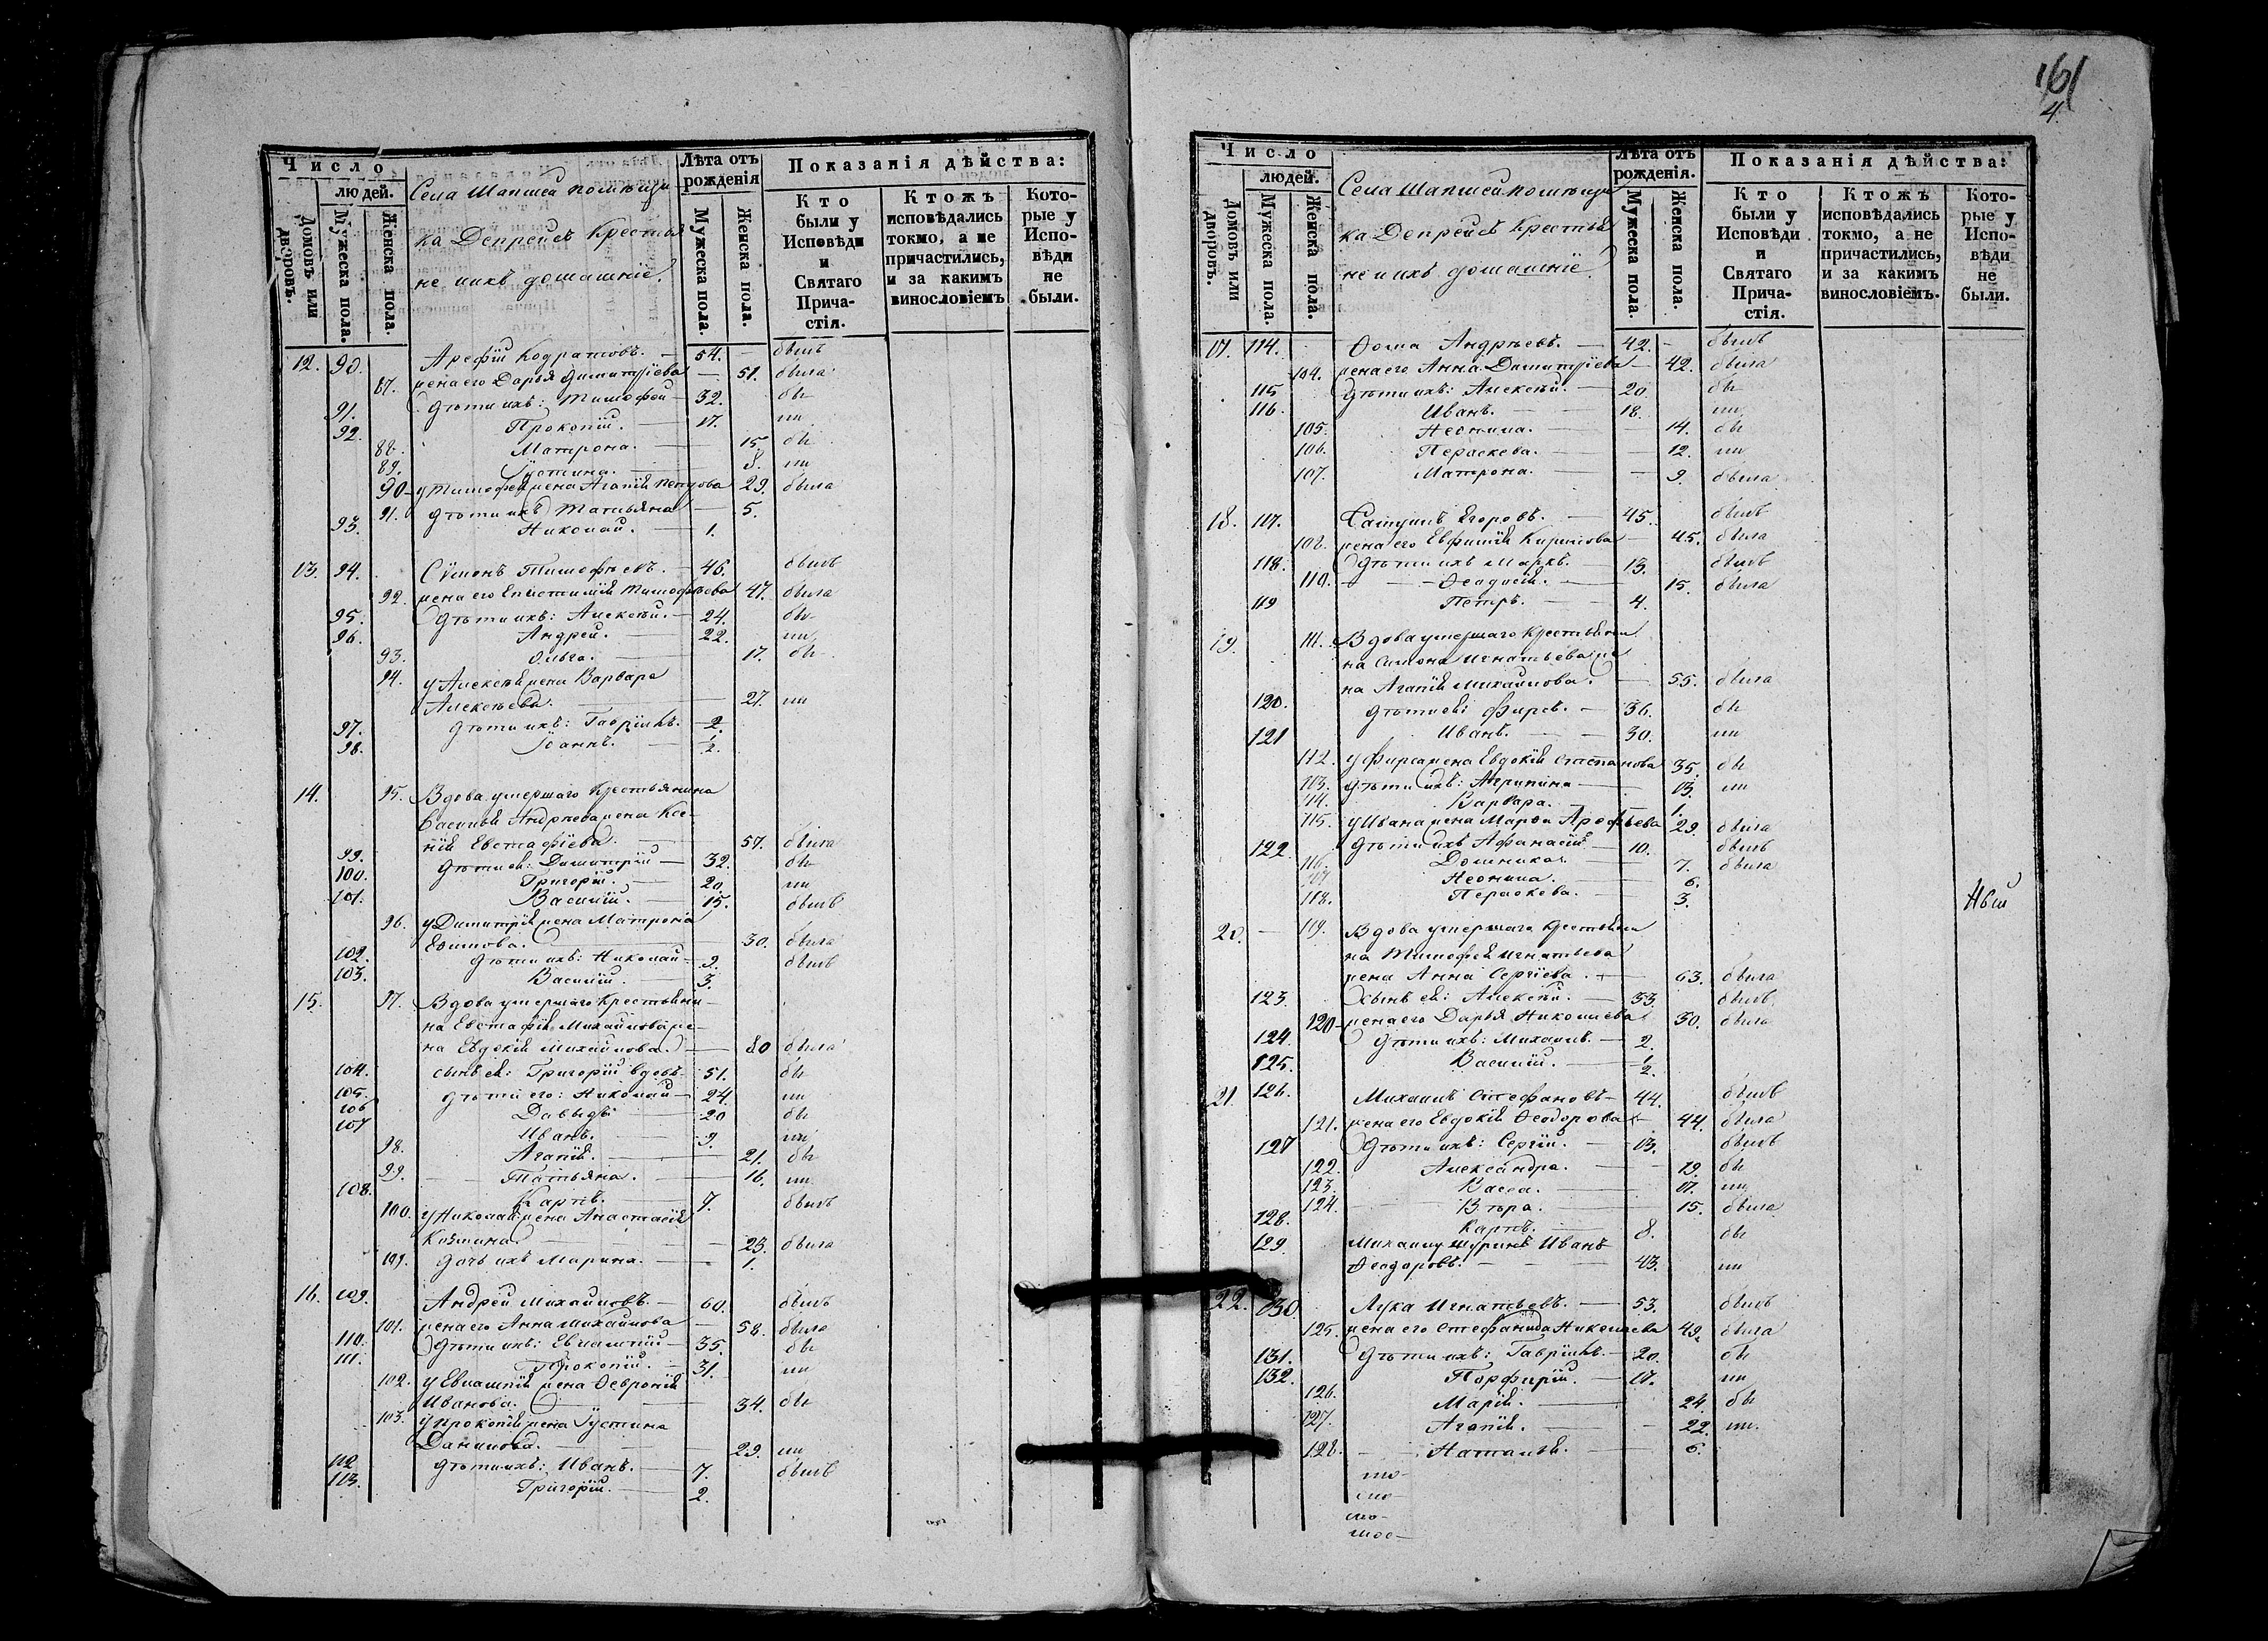 Число
людей.
Домовъ или дворовъ.
Мужеска пола.
Женска пола.
Села Шапшей помѣщи
ка Депрейсъ Крестья
не и ихъ домашніе.
Лѣта отъ рожденія
Мужеска пола.
Женска пола.
Показанія дѣйства:
Кто были у Исповѣди и Святаго Причастія.
Ктожъ исповѣдались токмо, а не причастились, и за какимъ винословіемъ
Которые у Исповѣди не были.
12. 90. Арефій Кодратовъ. 54. былъ
87. жена его Дарья Димитріева 51. была
91. Дѣти ихъ: Тимофей 32. бы
92. Прокопій. 17. ли
88. Матрона. 15 бы
89. Іустина. 8. ли
90 у Тимофея жена Агапія 29. была
91. дѣти ихъ Татьяна 5.
93. Николай. 1.
13. 94. Сѵмонъ Тимофѣевъ. 46. былъ
92. жена его Епистимія Тимофѣева 47. была
95. Дѣти ихъ: Алексѣй. 24. бы
96. Андрей. 22. ли
93. Ольга. 17. бы
94. у Алексѣя жена Варвара
Алексѣева. 27. ли
97. дѣти ихъ: Гавріилъ. 2.
98. Іоаннъ. 1/2.
14. 95. Вдова умершаго Крестьянина
Василья Андреева жена Ксе
нія Евстафіева. 57. была
99. дѣти ея: Димитрій 32. бы
100. Григорій. 20. ли
101. Василій. 15. былъ
96. у Димитрія жена Матрона
Ефимова. 30. была
102. дѣти ихъ: Николай 9. былъ
103. Василій. 3.
15. 97. Вдова умершаго Крестьяни
на Евстафія Михайлова же
на Евдокія Михайлова. 80 была
104. сынъ ея: Григорій вдовъ 51. бы
105. дѣти его: Николай 24. ли
106 Давыдъ 20 бы
107 Иванъ. 9. ли
98. Агапія. 21. бы
99. Татьяна. 16. ли
108. Карпъ. 7. былъ
100. у Николая жена Анастасія
Козмина. 23. была
109. дочь ихъ Марина. 1.
16. 109. Андрей Михайловъ. 60. былъ
101. жена его Анна Михайлова 58. была
110. Дѣти ихъ: Евлампій 35. бы
111. Прокопій. 31. ли
102. у Евлампія жена Ѳевронія
Иванова. 34. бы
103. у Прокопія жена Іустина
Данилова. 29. ли
112 дѣти ихъ: Иванъ. 7. былъ
113. Григорій. 2.
161
4.
Число
людей.
Домовъ или дворовъ.
Мужеска пола.
Женска пола.
Села Шапшей помѣщи
ка Депрейсъ Крестья
не и ихъ домашніе.
Лѣта отъ рожденія.
Мужеска пола.
Женска пола.
Показанія дѣйства:
Кто были у Исповѣди и Святаго Причастія.
Ктожъ исповѣдались токмо, а не причастились, и за какимъ винословіемъ.
Которые у Исповѣди не были.
17. 114. Ѳома Андрѣевъ. 42. былъ
104. жена его Анна Димитріева 42. была
115 Дѣти ихъ: Алексѣй. 20. бы
116. Иванъ. 18. ли
105. Неонила. 14. бы
106. Пераскева. 12. ли
107. Матрона. 9. была
18. 117. Егоровъ. 45. былъ
108. жена его Евфимія Кирилова 45. была
118. Дѣти ихъ Маркъ. 13. былъ
110. Ѳеодосія. 15. была
119 Петръ. 4.
19. 111. Вдова умершаго Крестьяни
на Симона Игнатьева же
на Агапія Михайлова. 55. была
120. дѣти ея: Фирсъ. 36. бы
121 Иванъ. 30. ли
112. у Фирса жена Евдокія Степанова 35. бы
113. дѣти ихъ: Агрипина 13. ли
114. Варвара. 1.
115. у Ивана жена Марѳа Арефьева 29. была
122. дѣти ихъ Афанасій 10. былъ
116. Домника. 7. была
117 Неонила. 6.
118. Пераскева. 3.
20. 119. Вдова умершаго Крестьяни
на Тимофея Игнатьева
жена Анна Сергіева. 63. была
123. Сынъ ея: Алексѣй. 33. былъ
120 жена его Дарья Николаева 30. была
124. дѣти ихъ: Михаилъ. 2.
125. Василій. 1/2.
21. 126. Михаилъ Стефановъ 44. былъ
121. жена его Евдокія Ѳеодорова 44. была
127 Дѣти ихъ: Сергій. 13. былъ
122. Александра. 19. бы
123. Васса. 17. ли
124. Вѣра. 15. была
128. Карпъ. 8. бы
129. Михаилу шуринъ Иванъ
Ѳеодоровъ. 43. ли
22. 130. Лука Игнатьевъ. 53. былъ
125. жена его Стефанида Николаева 49. была
131. Дѣти ихъ: Гавріилъ. 20. бы
132. Порфирій. 17. ли
126. Марія. 24. бы
127. Агапія. 22. ли.
128. Наталья. 6.